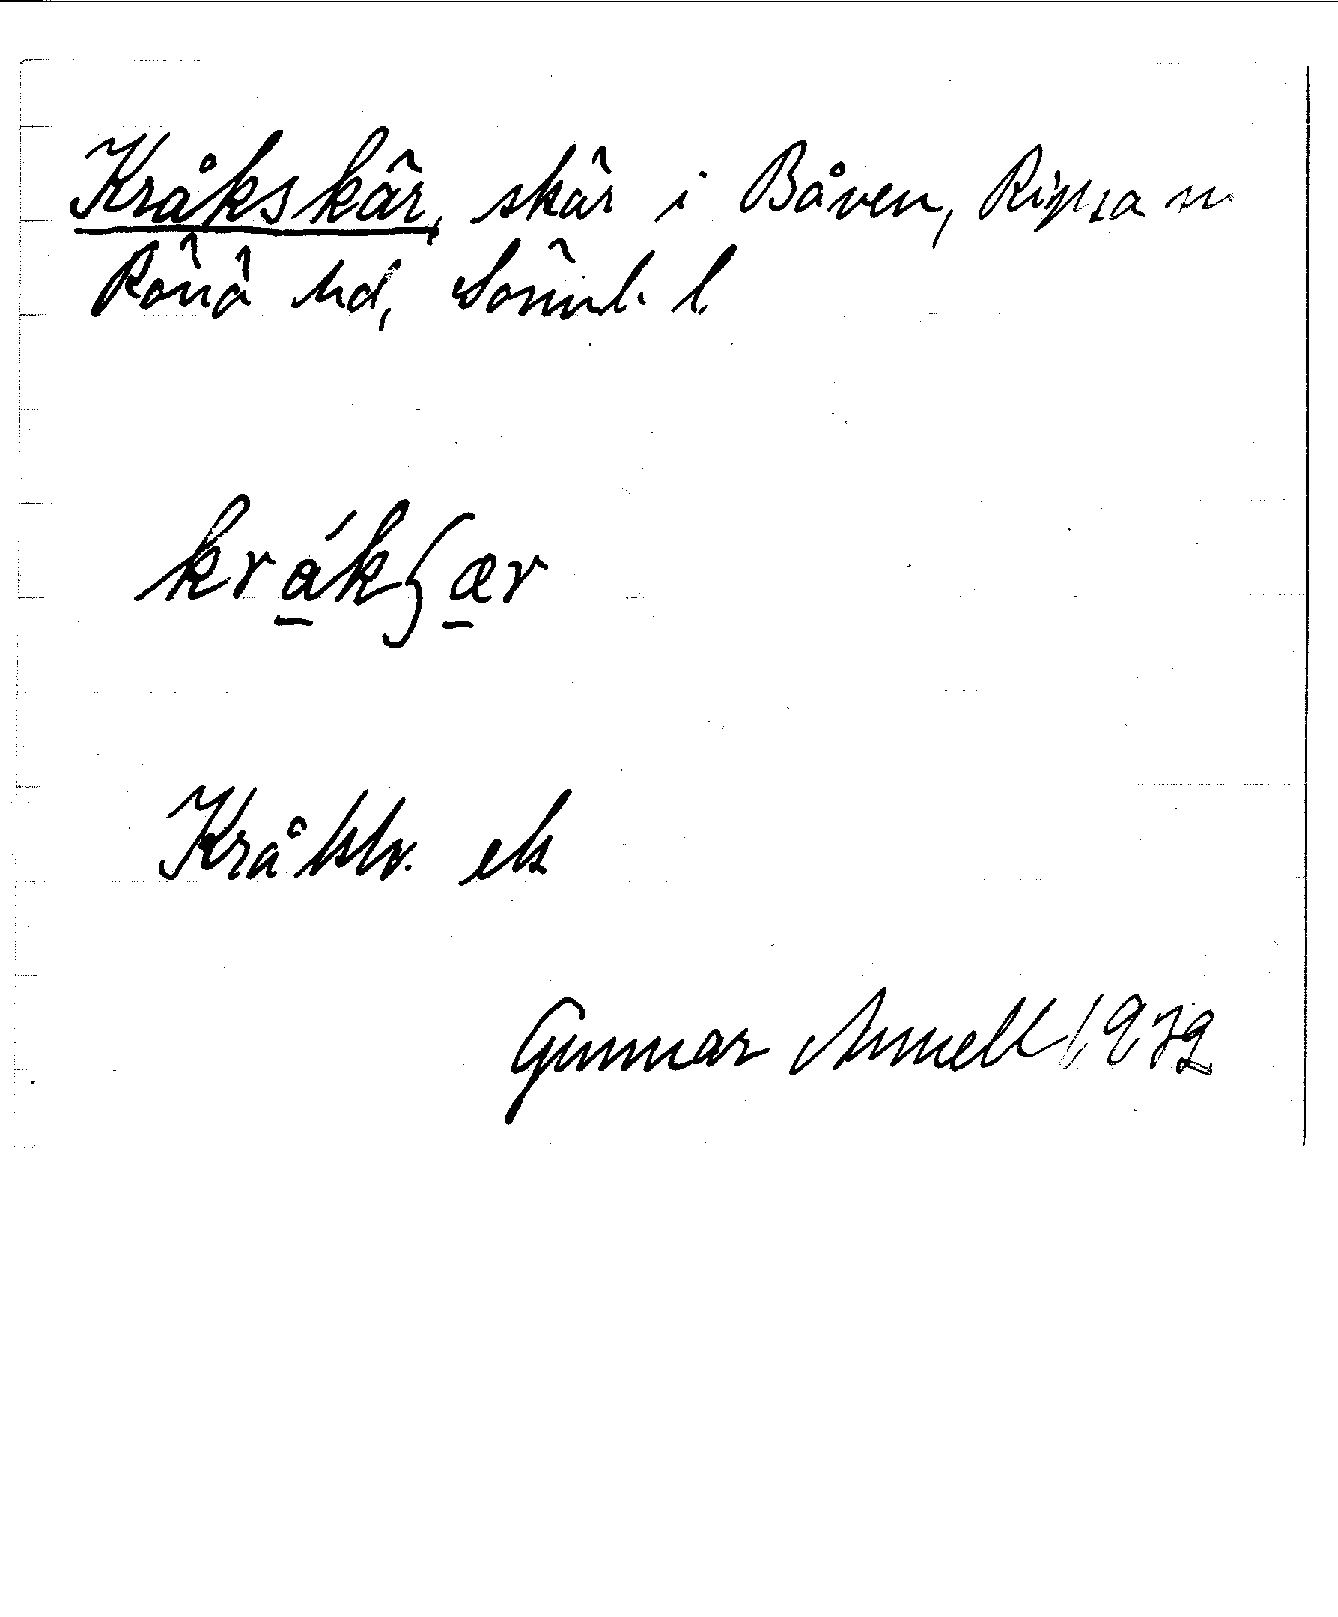 Kråkskär, skär i Båven, Ripsa sn
Rönö hd, Sörml. l.
krákʃær
Kråkskär. ek
Gunnar Arnell 1932